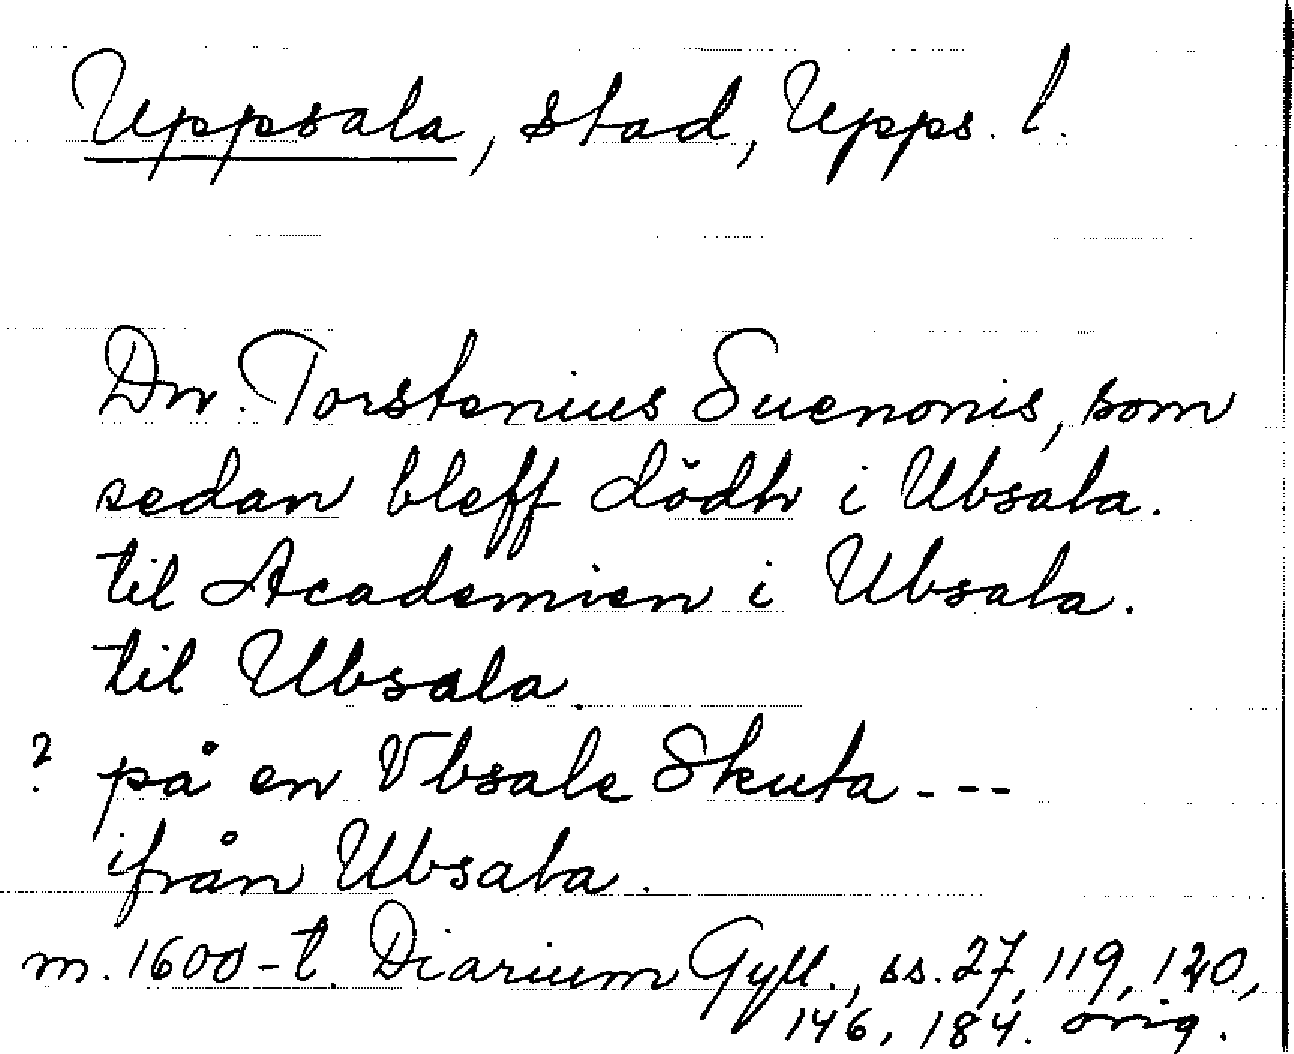 Uppsala, stad, Upps. l.
Dn. Torstenius Suenonis, som
sedan bleff dödh i Ubsala.
til Academien i Ubsala.
til Ubsala.
? på en Vbsale Skuta ---
ifrån Ubsala.
m. 1600-t. Diarium Gyll., ss. 27, 119, 120,
146, 184. orig.